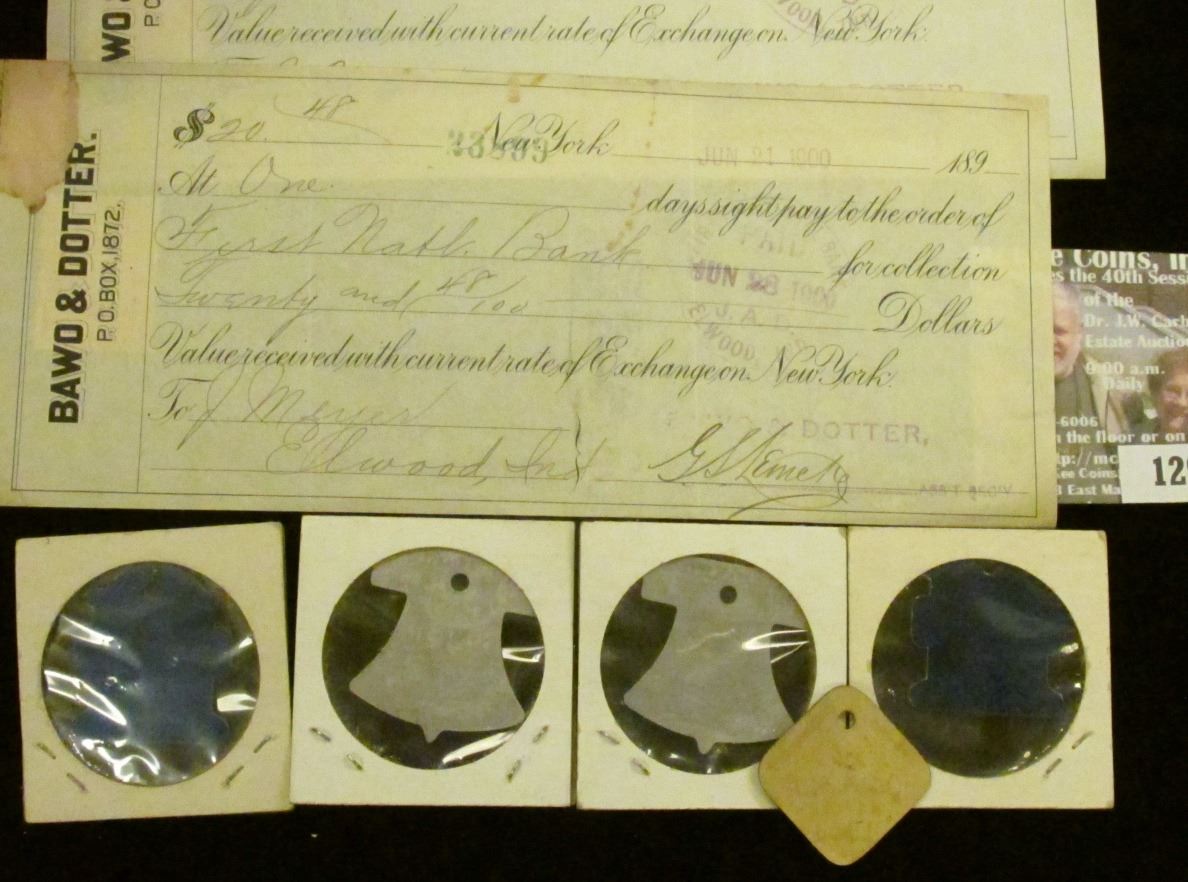 WO &
P.O
Value received with current rate of Exchange on New York.
DOTTER
BAWO & DOTTER.
P.O. BOX, 1872.
$ 20. 48
New York JUN 21 1900 189
At One days sight pay to the order of
First Natl. Bank for collection
JUN 28 1900
Twenty and 48/100 Dollars
Value received with current rate of Exchange on New York.
To J Meyer
& DOTTER,
Elwood, Ind
e Coins, I
es the 40th Sessi
of the
Dr. J.W. Carb
Estate Auctio
9:00 a.m.
Daily
-6006
the floor or on
tp://mc
Kee Coins
East Ma
12